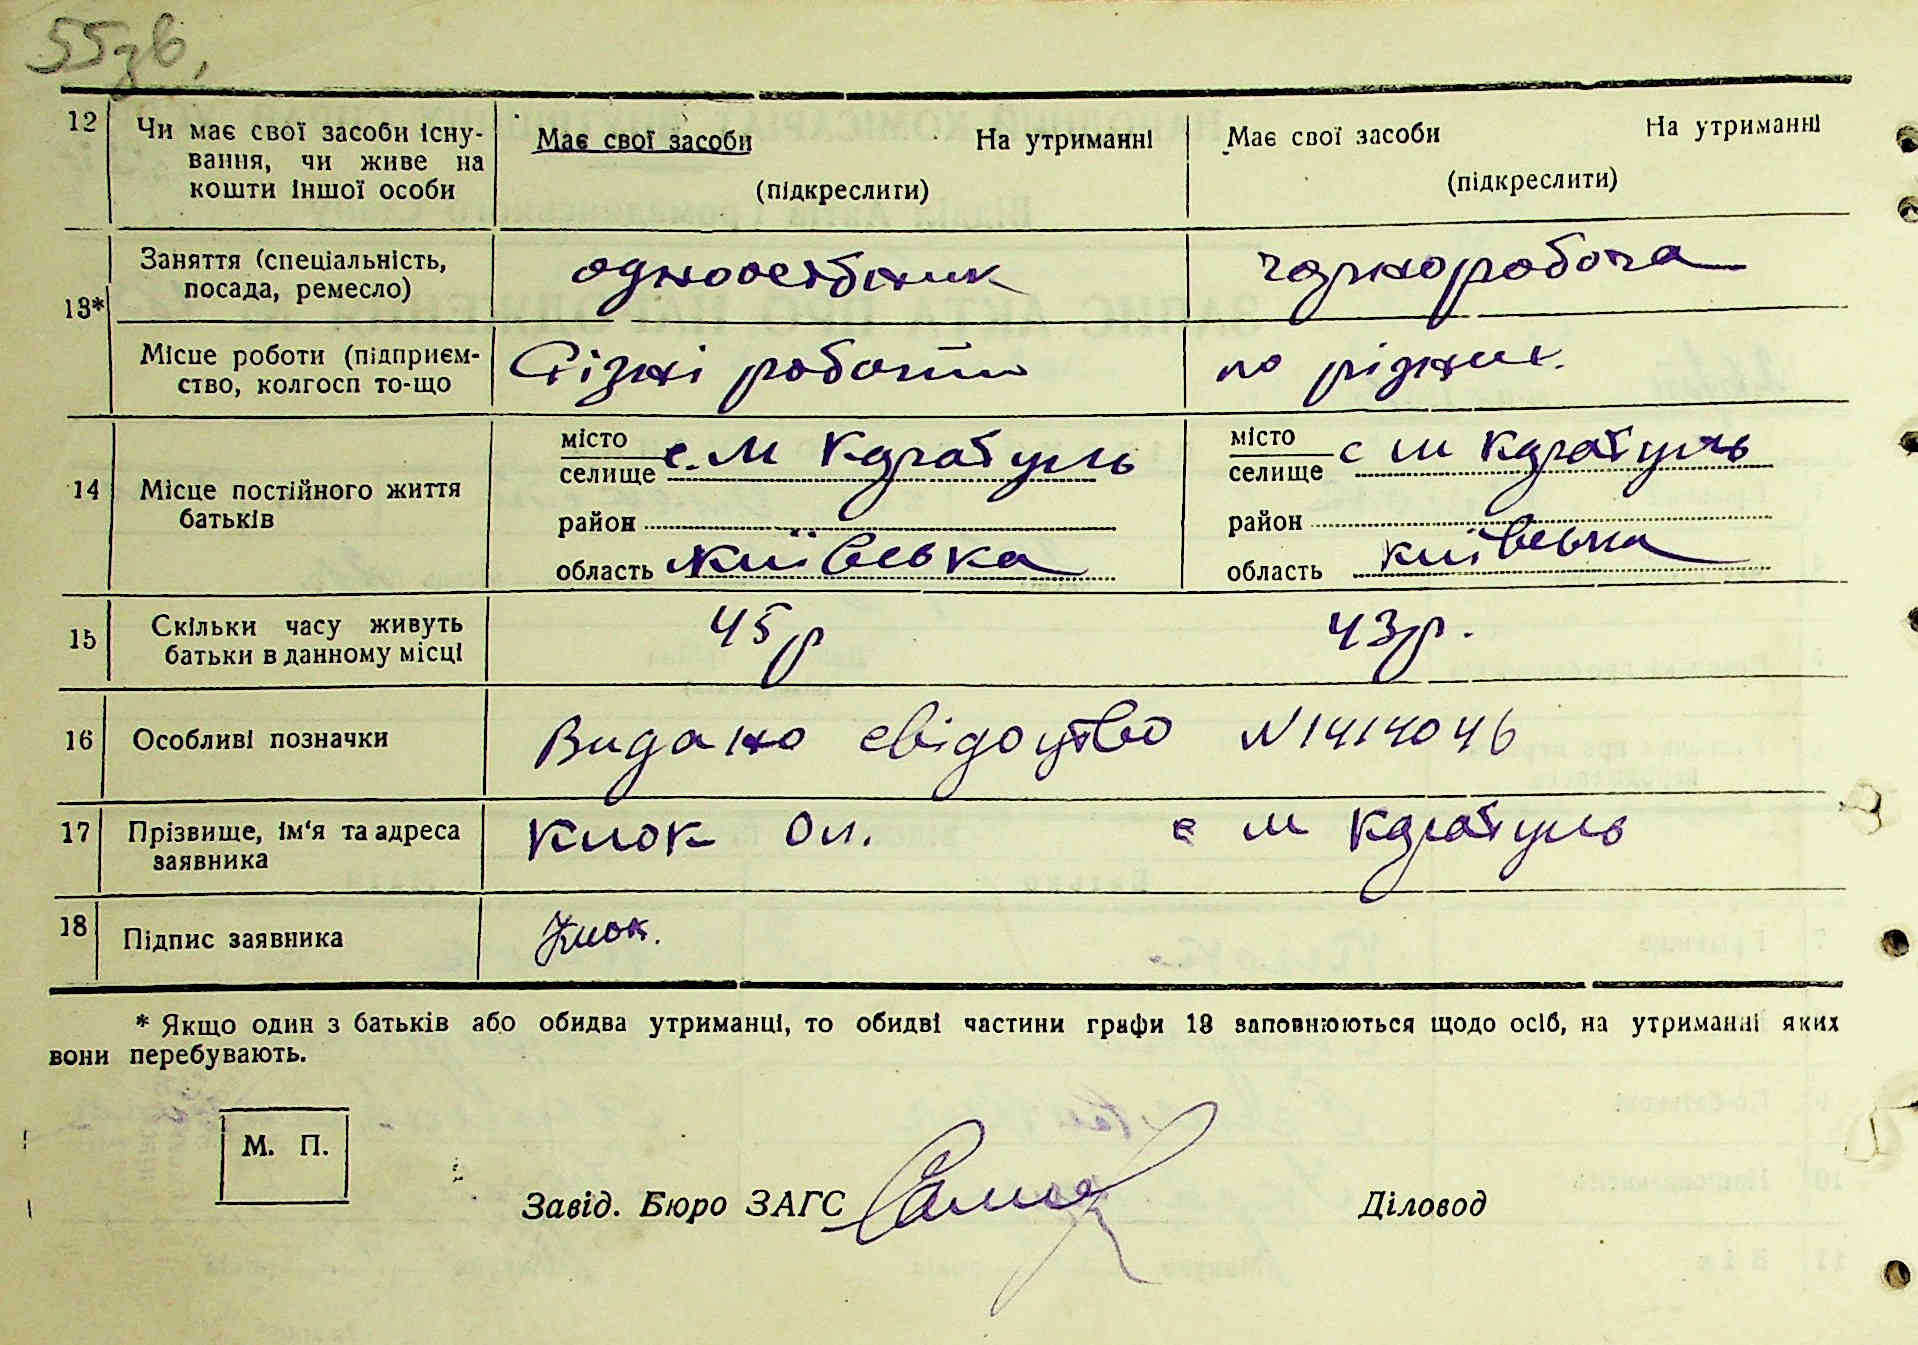 55зв,
12 Чи має свої засоби існу-
вання, чи живе на
кошти іншої особи
Має свої засоби На утриманні
(підкреслити)
Має свої засоби На утриманні
(підкреслити)
13*
Заняття (спеціальність,
посада, ремесло)
одноосібник
чорноробоча
Місце роботи (підприєм-
ство, колгосп то-що
Різні роботи
по різних.
14 Місце постійного життя
батьків
місто
селище с. М Каратуль
район
область Київська
місто
селище с М Каратуль
район
область Київська
15 Скільки часу живуть
батьки в данному місці
45р
43р.
16 Особливі позначки
Видано свідоцтво N1414046
17 Прізвище, ім'я та адреса
заявника
Клок Ол. с М Каратуль
18 Підпис заявника
Клок.
* Якщо один з батьків або обидва утриманці, то обидві частини графи 13 заповнюються щодо осіб, на утриманні яких
вони перебувають.
М. П.
Завід. Бюро ЗАГС
Діловод